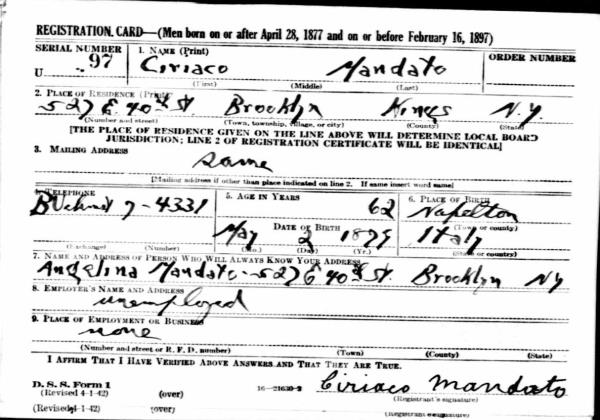 REGISTRATION CARD—(Men born on or after April 28, 1877 and on or before February 16, 1897)
SERIAL NUMBER 1. NAME (Print) ORDER NUMBER
U 97 Ciriaco Mandato
(First) (Middle) (Last)
2. PLACE OF RESIDENCE (Print)
527 E. 40th St. Brooklyn Kings N.Y.
(Number and street) (Town, township, village, or city) (County) (State)
[THE PLACE OF RESIDENCE GIVEN ON THE LINE ABOVE WILL DETERMINE LOCAL BOARD
JURISDICTION; LINE 2 OF REGISTRATION CERTIFICATE WILL BE IDENTICAL]
3. MAILING ADDRESS
same
[Mailing address if other than place indicated on line 2. If same insert word same]
4. TELEPHONE 5. AGE IN YEARS 6. PLACE OF BIRTH
7-4331 62 Napelton
DATE OF BIRTH (Town or county)
May 2 1879 Italy
(Exchange) (Number) (Mo.) (Day) (Yr.) (State or country)
7. NAME AND ADDRESS OF PERSON WHO WILL ALWAYS KNOW YOUR ADDRESS
Angelina Mandato-527 E 40th St. Brooklyn NY
8. EMPLOYER'S NAME AND ADDRESS
unemployed
9. PLACE OF EMPLOYMENT OR BUSINESS
none
(Number and street or R. F. D. number) (Town) (County) (State)
I AFFIRM THAT I HAVE VERIFIED ABOVE ANSWERS AND THAT THEY ARE TRUE.
D. S. S. Form 1
(Revised 4-1-42) (over) 16—21630-2 Ciriaco Mandato
(Registrant's signature)
(Revised 4-1-42) (over) (Registrant's signature)